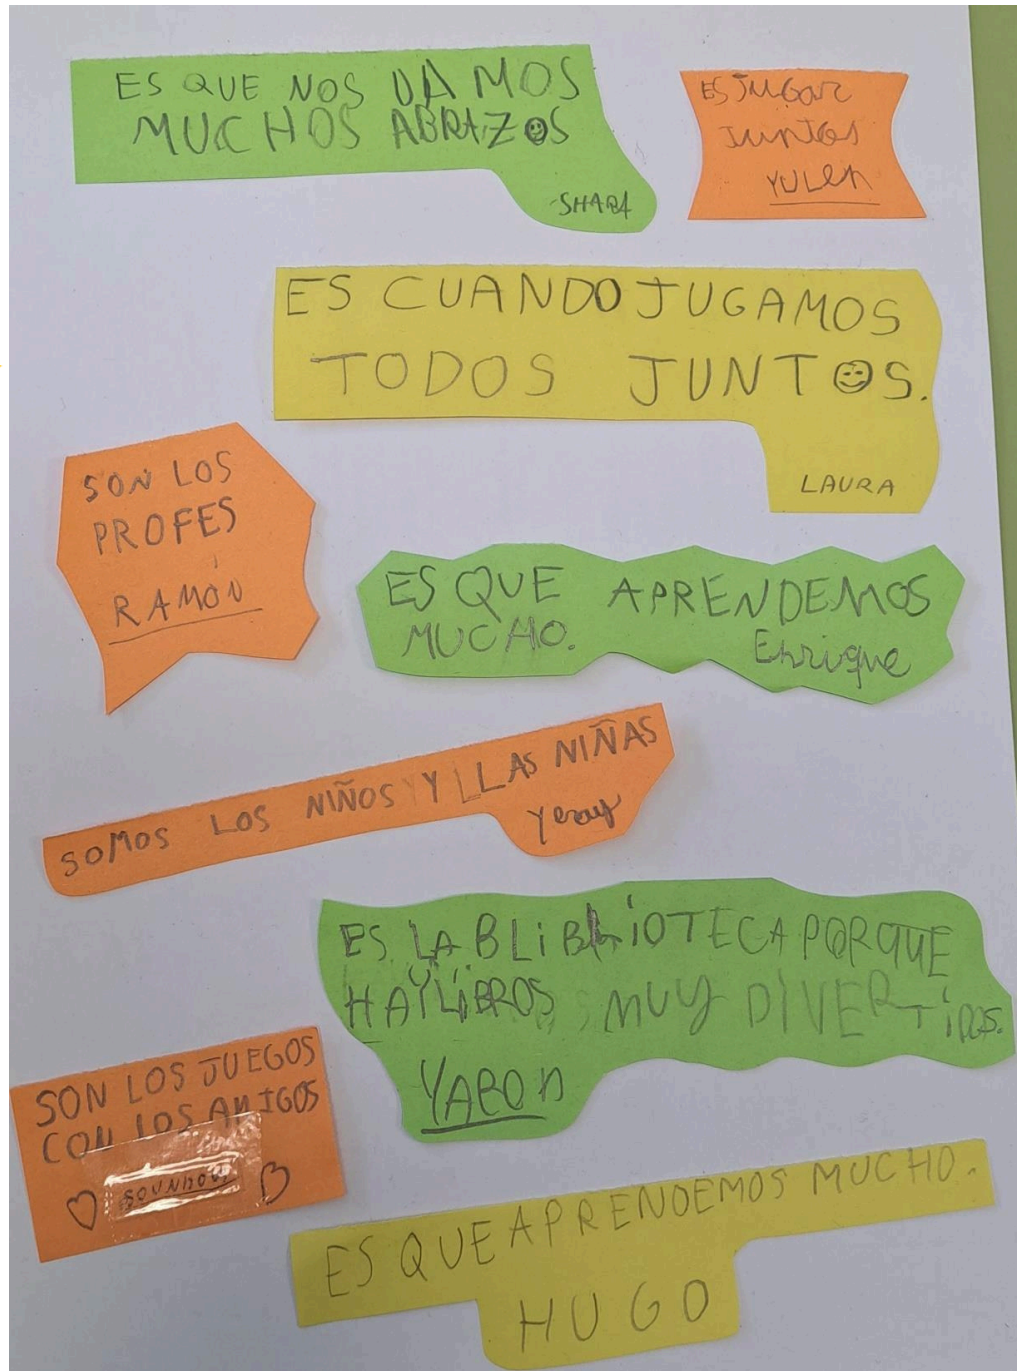 ES QUE NOS DAMOS
MUCHOS ABRAZOS
SHARA
ES JUGAR
JUNTOS
YULEN
ES CUANDO JUGAMOS
TODOS JUNTOS.
LAURA
SON LOS
PROFES
RAMÓN
ES QUE APRENDEMOS
MUCHO.
Enrique
SOMOS LOS NIÑOS Y LLAS NIÑAS
Yeray
ES LA BLIBLIOTECA PORQUE
HAY LIBROS MUY DIVERTIDOS.
YARON
SON LOS JUEGOS
CON LOS AMIGOS
ES QUE APRENDEMOS MUCHO.
HUGO